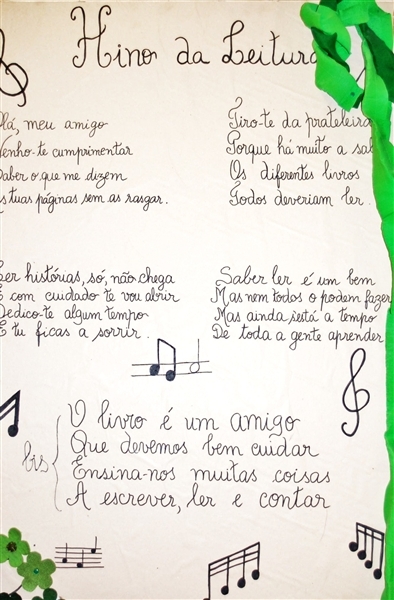 Hino da Leitura
lá, meu amigo
enho-te cumprimentar
aber o que me dizem
s tuas páginas sem as rasgar.
Tiro-te da prateleira
Porque há muito a sab
Os diferentes livros
Todos deveriam ler.
er histórias, só, não chega
E com cuidado te vou abrir
Dedico-te algum tempo
E tu ficas a sorrir.
Saber ler é um bem
Mas nem todos o podem fazer
Mas ainda está a tempo
De toda a gente aprender
bis
O livro é um amigo
Que devemos bem cuidar
Ensina-nos muitas coisas
A escrever, ler e contar